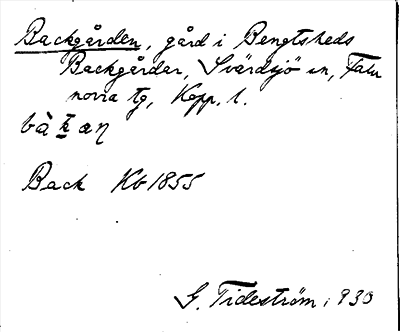 Backgården, gård i Bengtsheds
Backgårdar, Svärdsjö sn, Falu
norra tg, Kopp. l.
bà k æn
Back Kb 1855
G. Tideström, 930